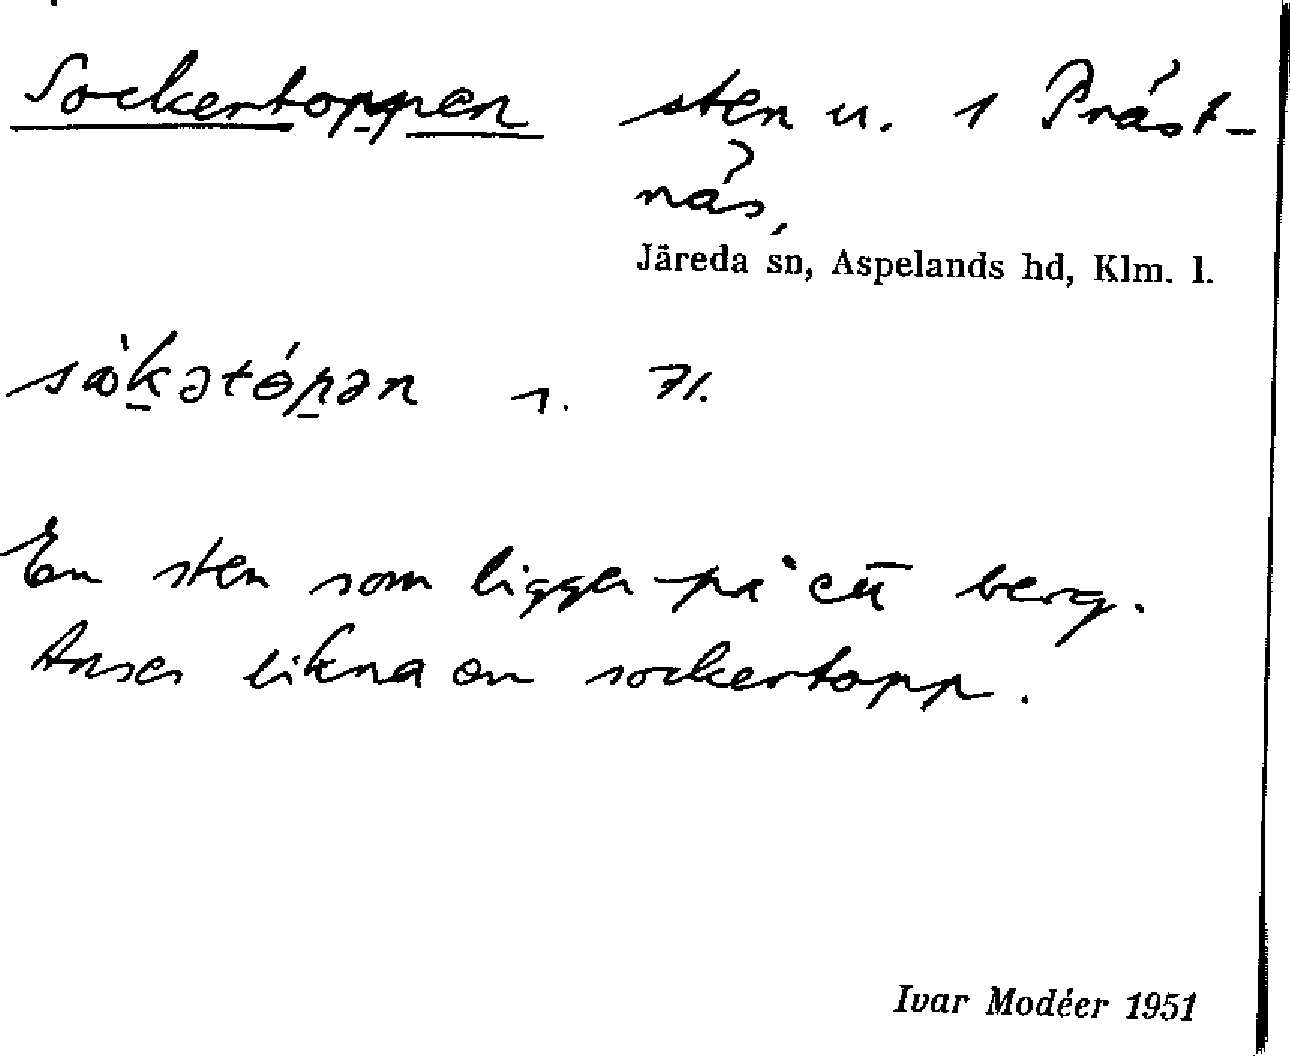 Sockertoppen sten u. 1 Präst-
näs,
Järeda sn, Aspelands hd, Klm. l.
En sten som ligger på ett berg.
Anses likna en sockertopp.
Ivar Modéer 1951